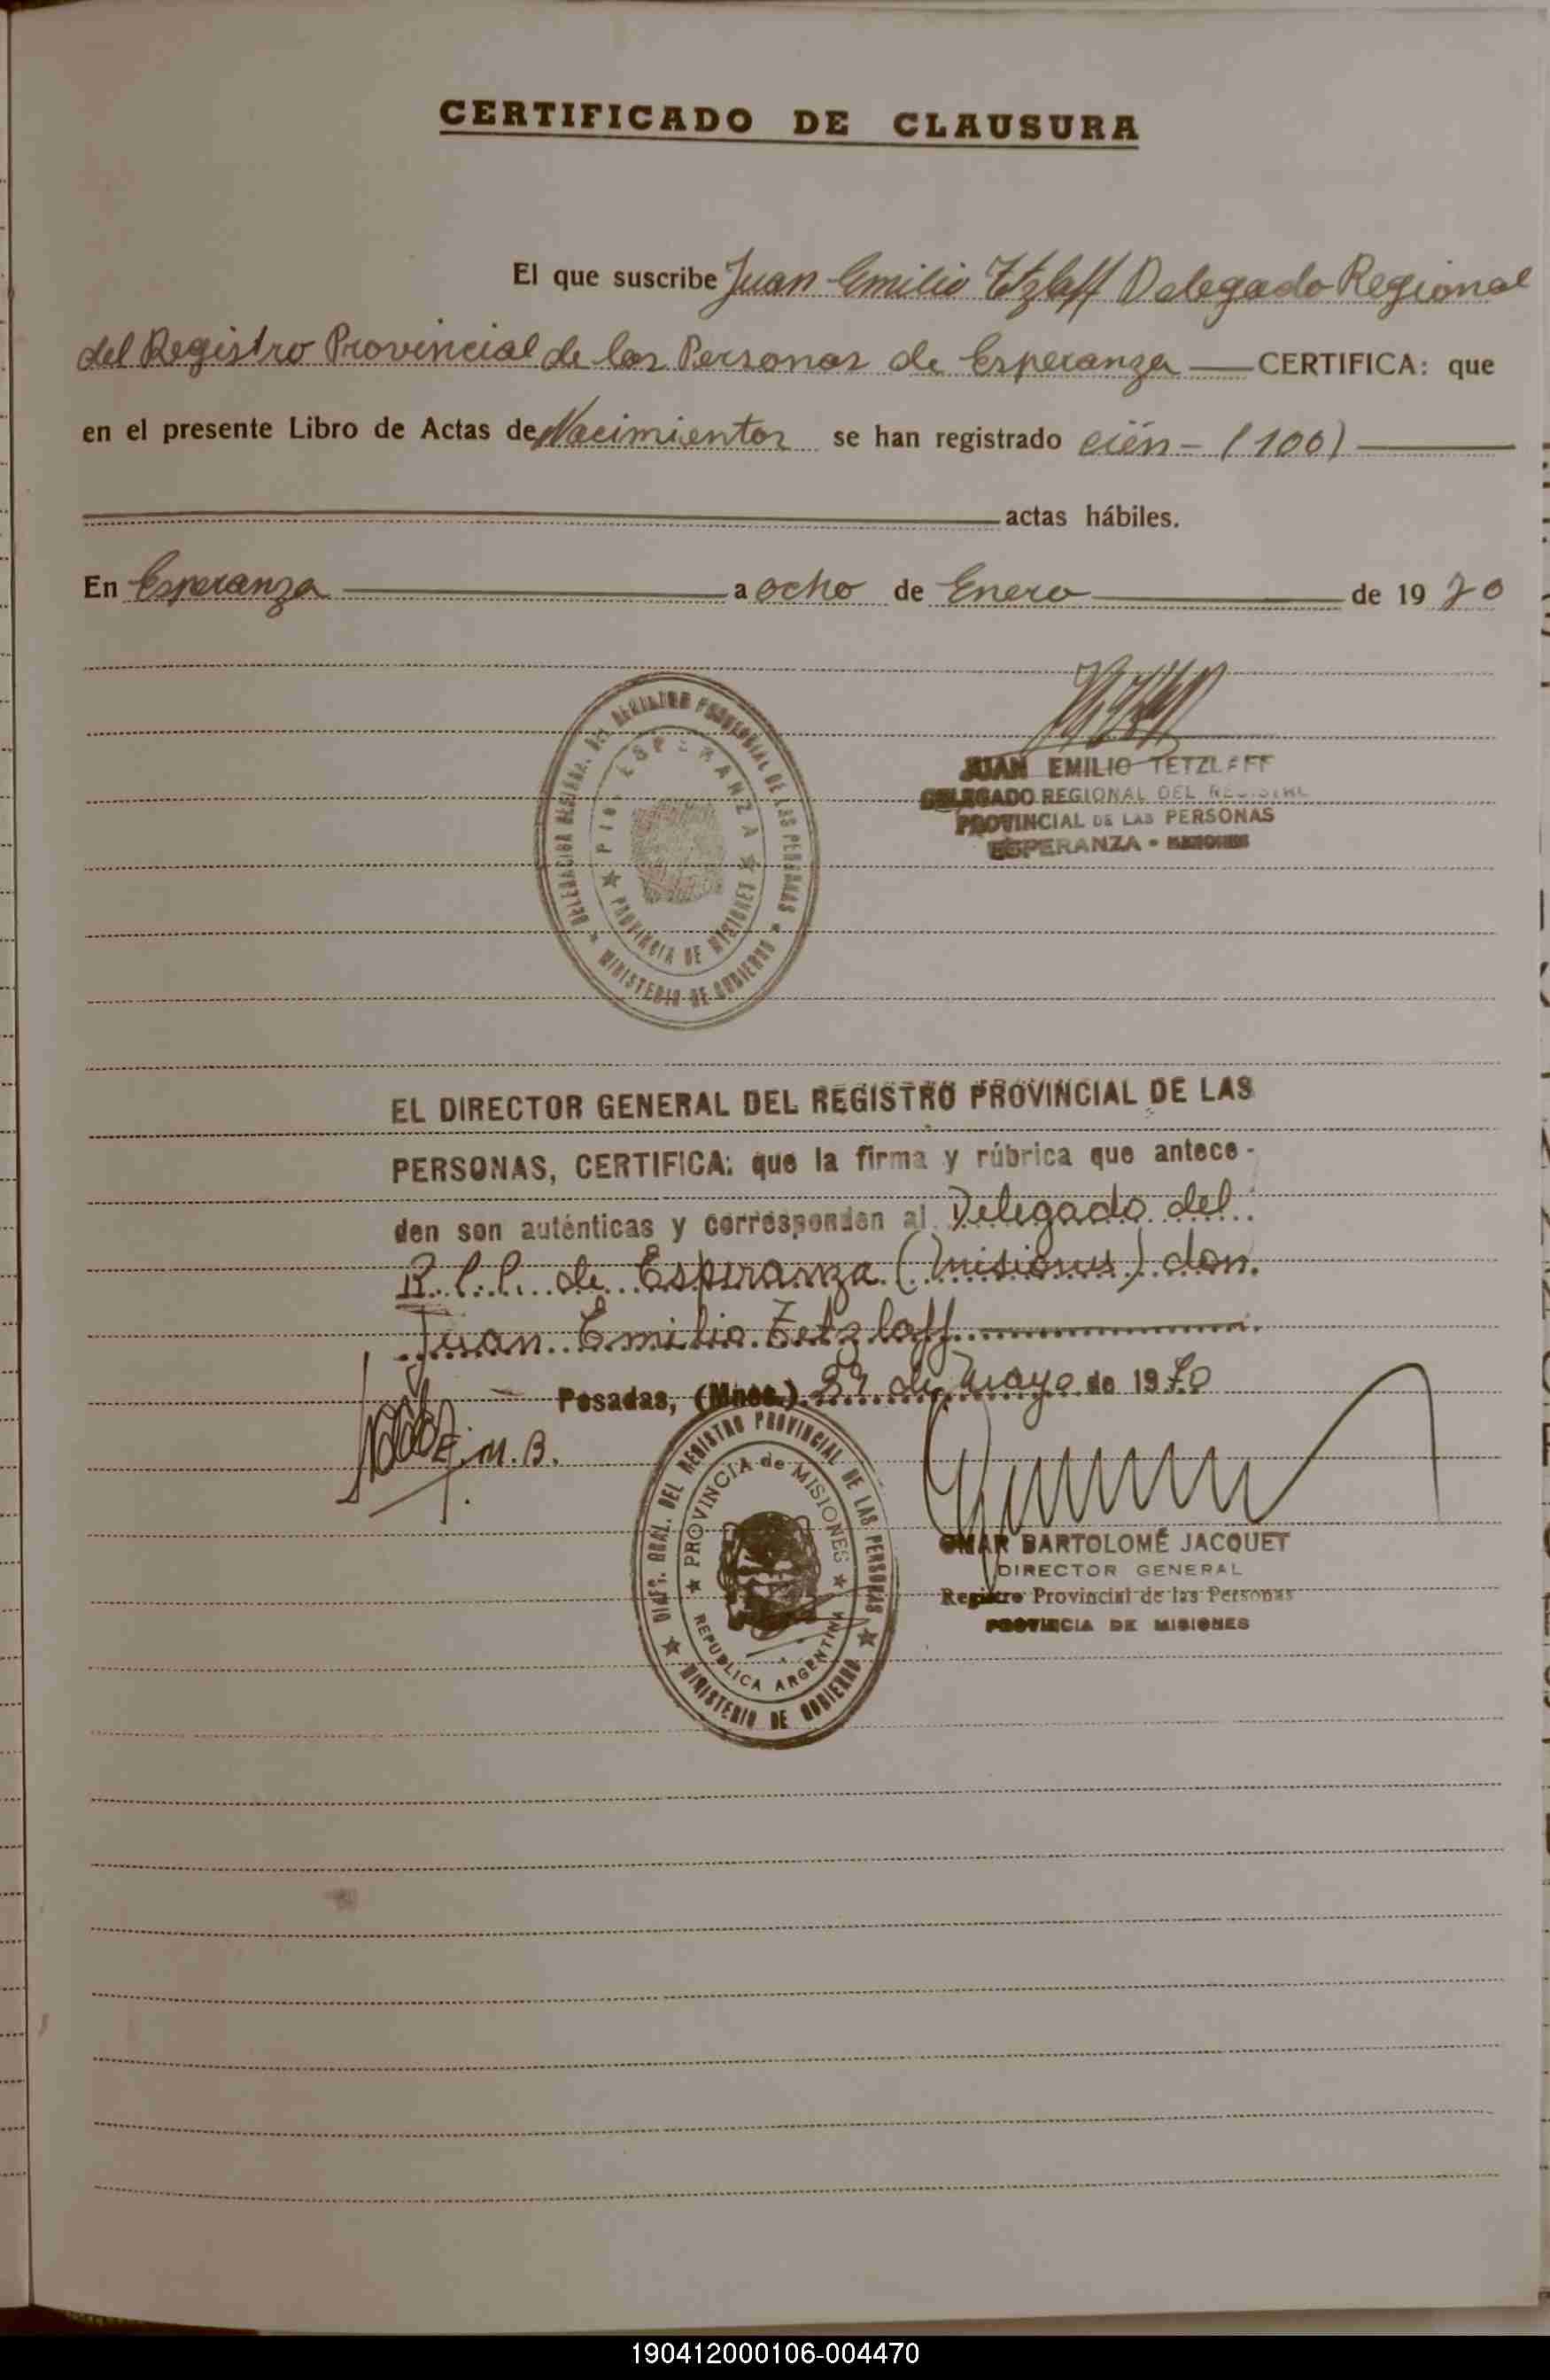 CERTIFICADO DE CLAUSURA
El que suscribe Juan Emilio Tetzlaff Delegado Regional
del Registro Provincial de las Personas de Esperanza CERTIFICA: que
en el presente Libro de Actas de Nacimientos se han registrado cién - (100)
actas hábiles.
En Esperanza a ocho de Enero de 1970
DELEGACION REGIONAL DEL REGISTRO PROVINCIAL DE LAS PERSONAS
MINISTERIO DE GOBIERNO
ESPERANZA
PROVINCIA DE MISIONES
JUAN EMILIO TETZLAFF
DELEGADO REGIONAL DEL REGISTRO
PROVINCIAL DE LAS PERSONAS
ESPERANZA - MISIONES
EL DIRECTOR GENERAL DEL REGISTRO PROVINCIAL DE LAS
PERSONAS, CERTIFICA: que la firma y rúbrica que antece-
den son auténticas y corresponden al Delegado del
R.P.P. de Esperanza (Misiones) don
Juan Emilio Tetzlaff
Posadas, (Mnes.) de Mayo de 1970
E.M.B.
DIREC. GRAL. DEL REGISTRO PROVINCIAL DE LAS PERSONAS
MINISTERIO DE GOBIERNO
PROVINCIA de MISIONES
REPUBLICA ARGENTINA
OMAR BARTOLOMÉ JACQUET
DIRECTOR GENERAL
Registro Provincial de las Personas
PROVINCIA DE MISIONES
190412000106-004470